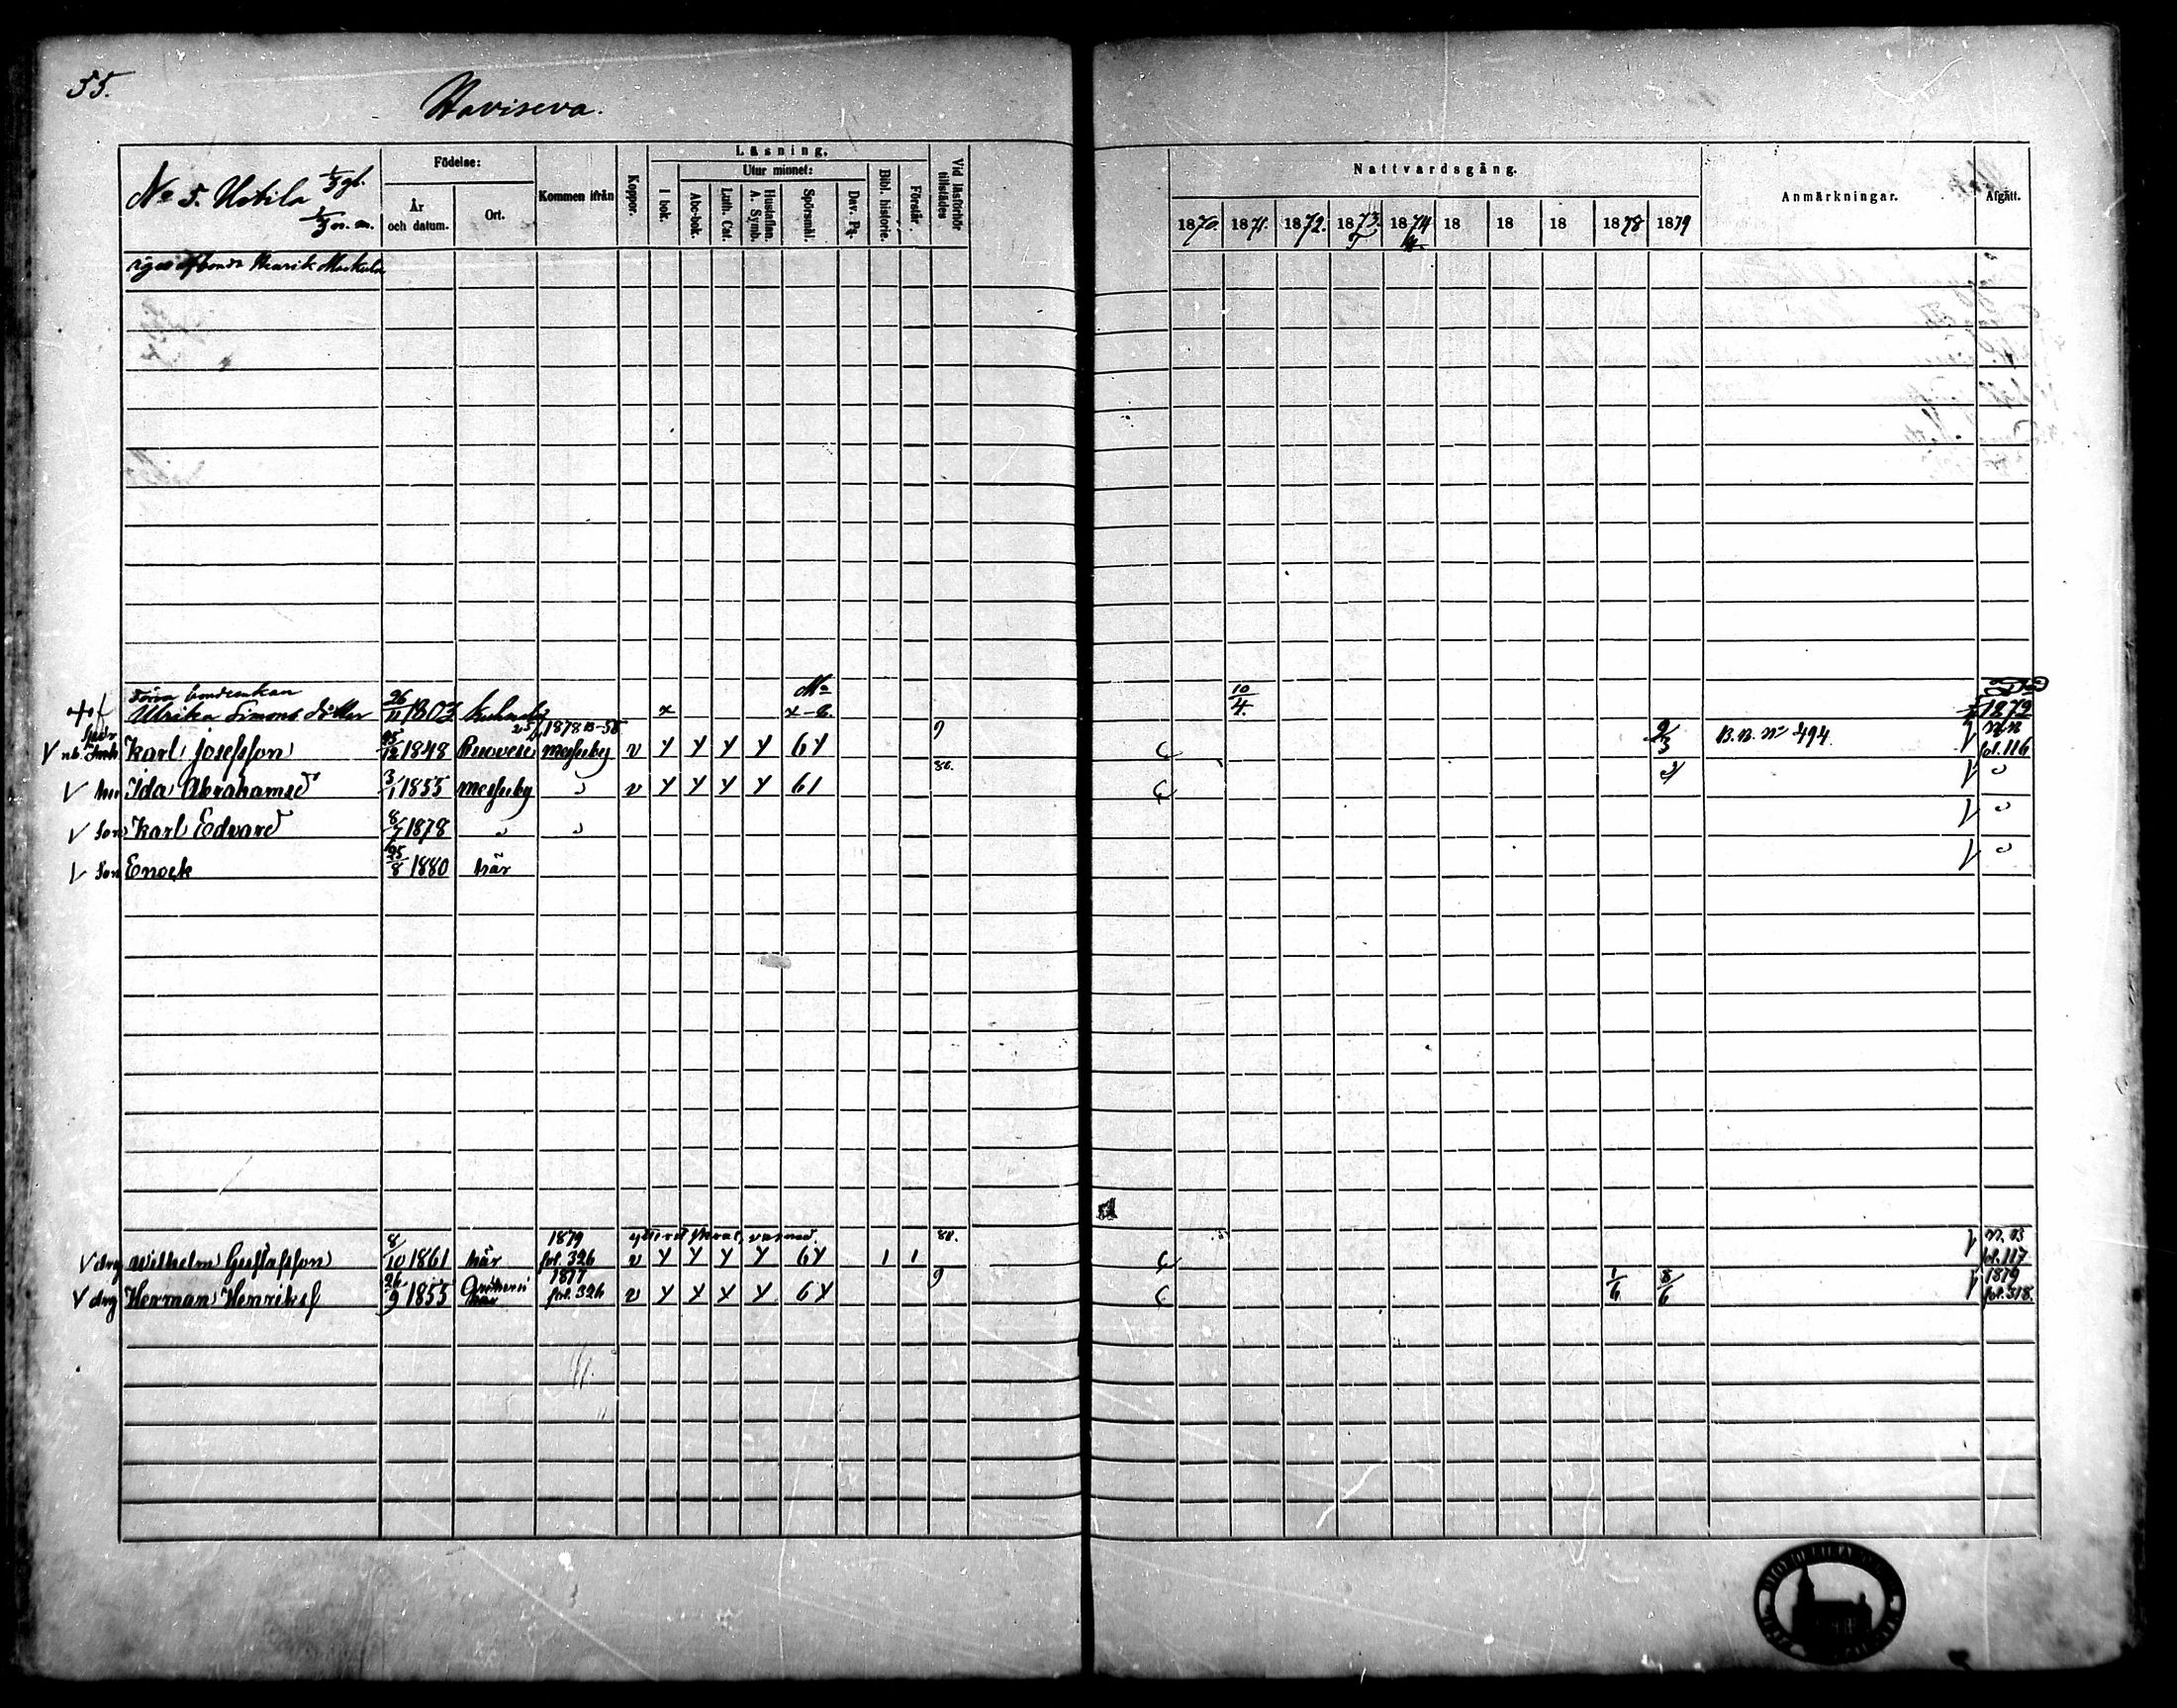 55.
Haviseva.
No 5. Uotila 1/3 gl.
1/3 n. m.
Födelse:
År och datum.
Ort.
Kommen ifrån
Koppor.
Läsning.
I bok.
Utur minnet:
Abc-bok.
Luth. Cat.
Hustaflan. A. Symb.
Spörsmål.
Dav. Ps.
Bibl. historie.
Förstår.
Vid läsförhör tillstädes
Nattvardsgång.
1870. 1871. 1872. 1873. 1874 18 18 18 1878 1879
Anmärkningar.
Afgått.
äges af bonde Henrik
Förra bondenkan
Ulrika Simons dotter 26/11 1803 x x-8. 10/4. 1872
Karl Josefsson 25/12 1848 Ruovesi 1878 B-58 Messuby v Y Y Y Y 6Y 9 2/3 B.n. No 494 fol. 116
V hu Ida Abrahamsd 3/1 1855 Messuby " v Y Y Y Y 61 80. "
V Son Karl Edvard 8/7 1878 " " "
V Son Enock 25/8 1880 här "
V drg Wilhelm Gustafsson 8/10 1861 här 1879 fol. 326 v Y Y Y Y 6Y 1 1 80. fol. 117
V drg Herman Henrikss 26/9 1855 här 1877 fol. 326 v Y Y Y Y 6Y 9 1/6 8/6 1879 fol. 318.